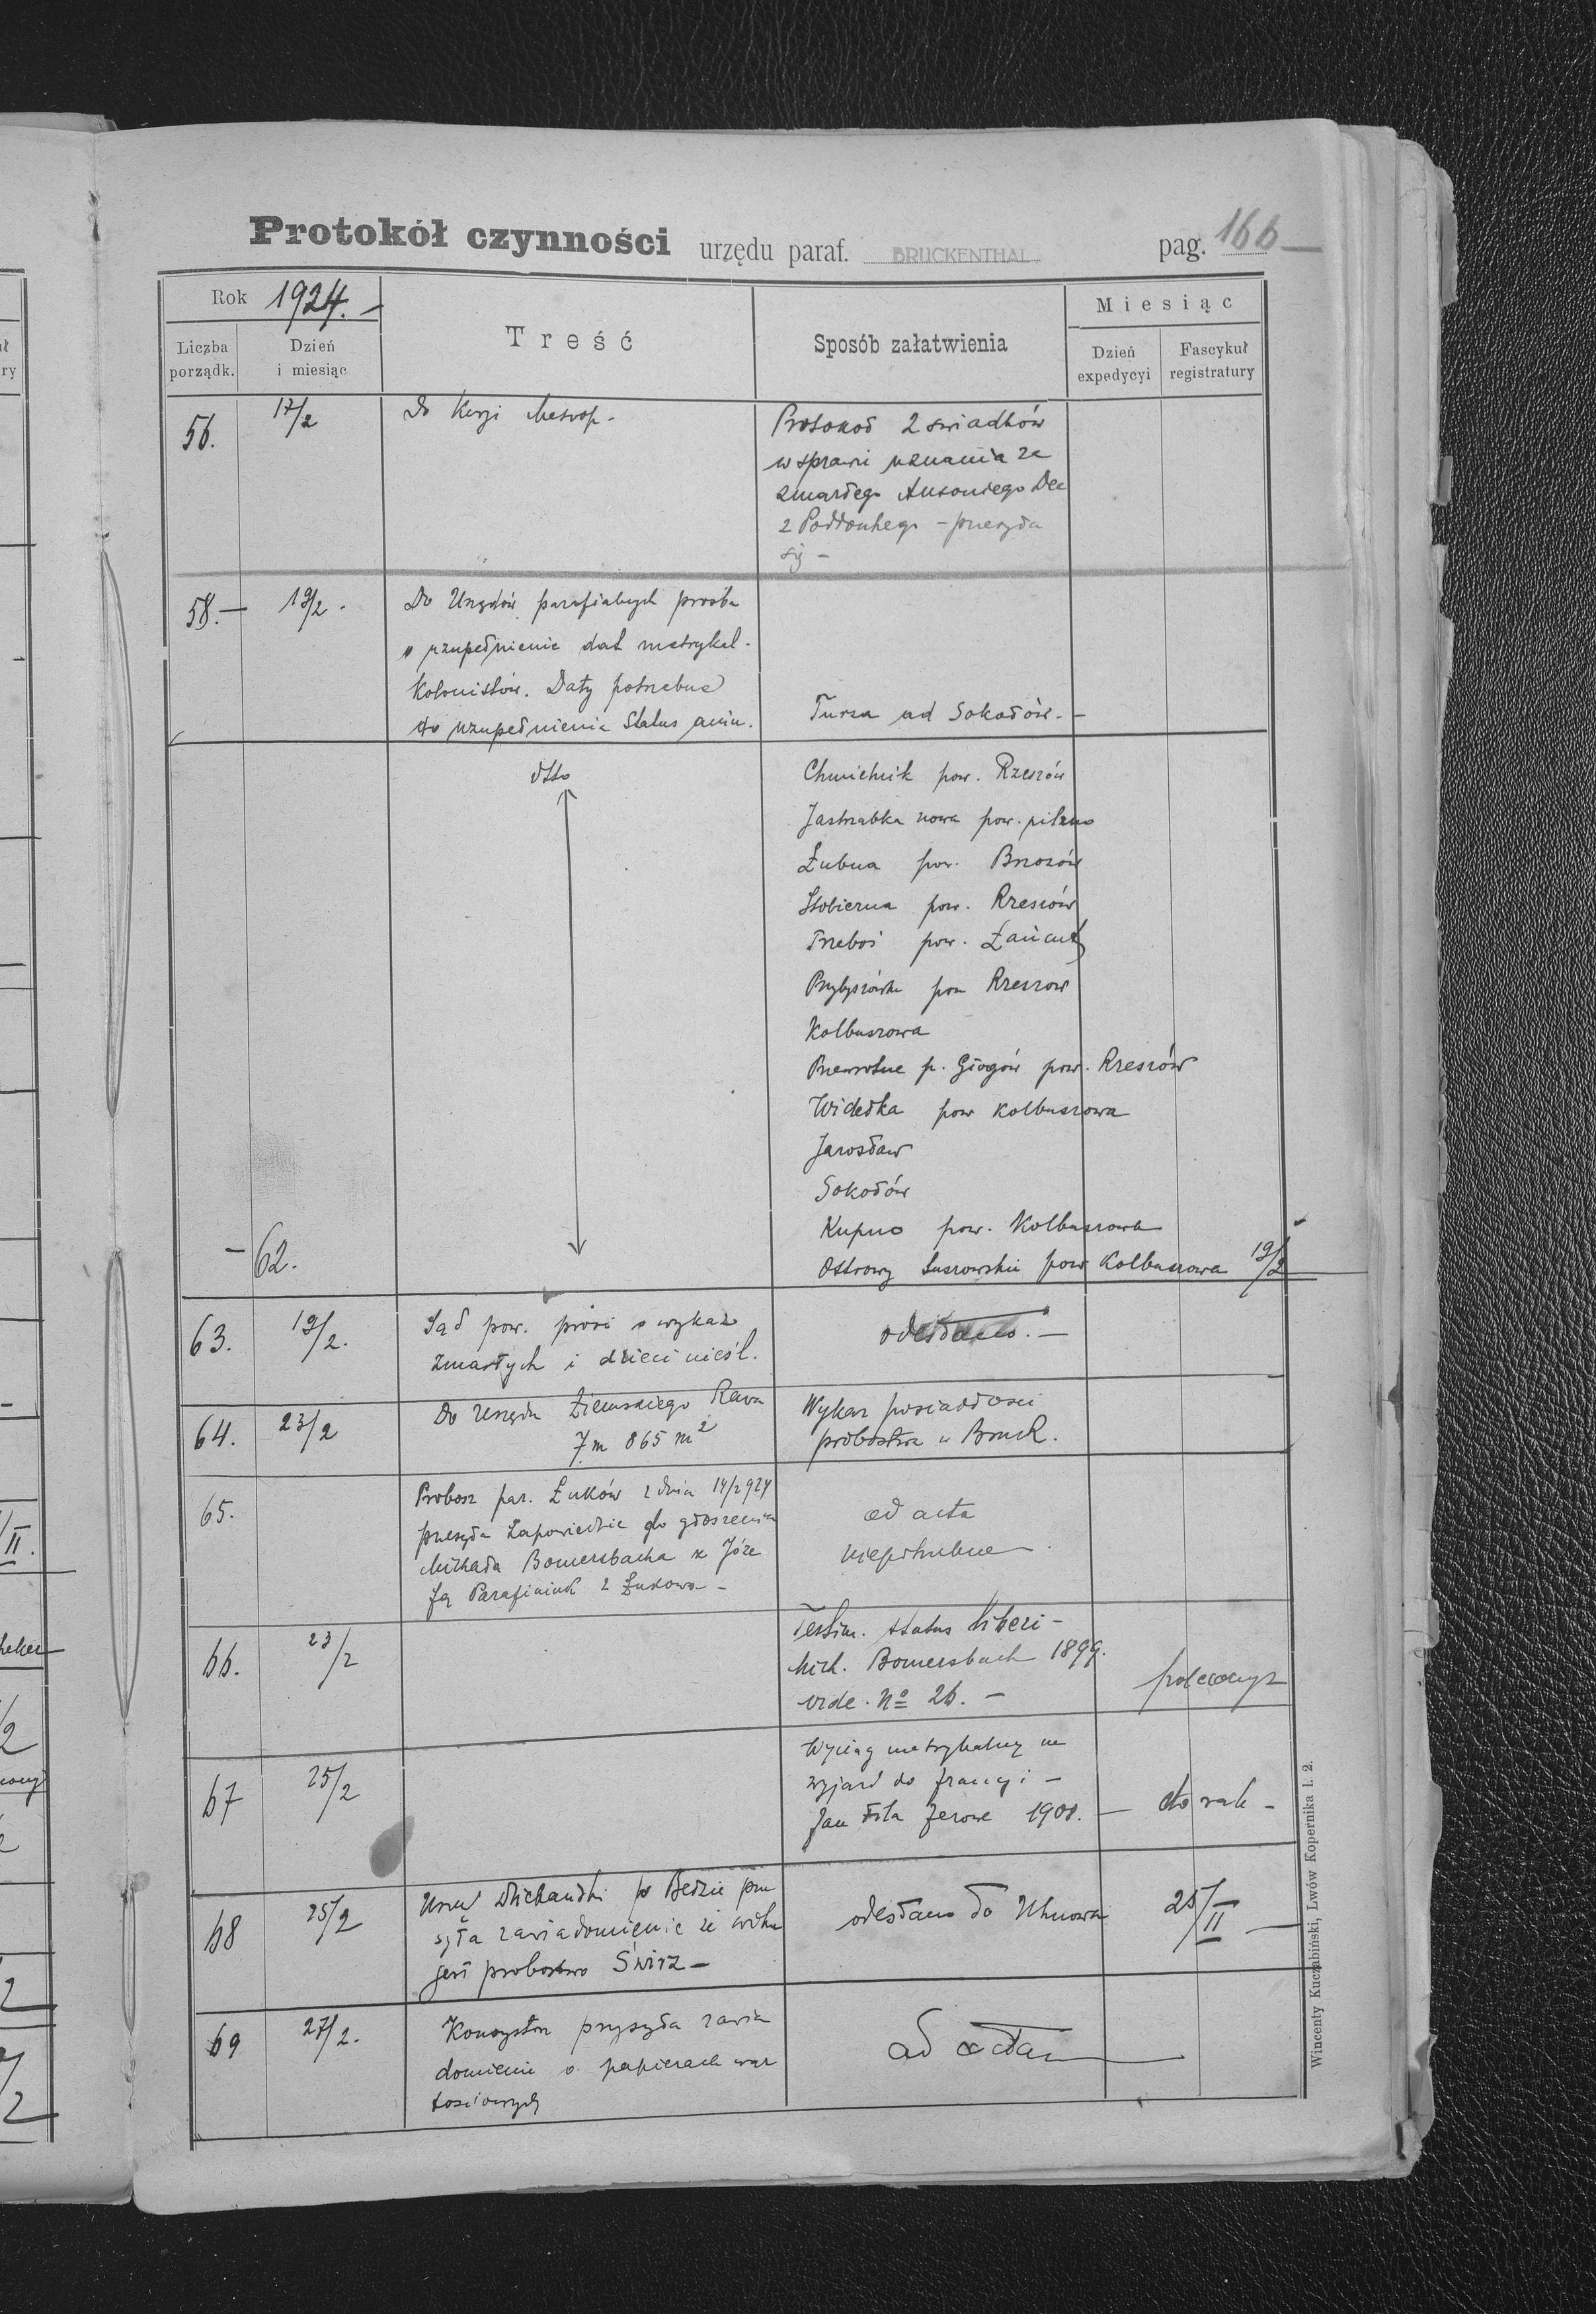 Protokół czynności urzędu paraf. BRUCKENTHAL pag. 166
Rok 1924.
Liczba porządk.
Dzień i miesiąc
Treść
Sposób załatwienia
Miesiąc
Dzień expedycyi
Fascykuł registratury
56. 17/2 Do Kurji Metrop.
Protokoł 2 swiadków
w sprawie uznania za
zmarłego Antoniego Dec
z Poddouhego - przesyła
się -
58. - 19/2.
Do Urzędów parafialnych prośba
o uzupełnienie dat metrykal.
Kolonistów. Daty potrzebne
do uzupełnienia Status anim.
Turza ad Sokołów. -
dtto
Chmielnik pow. Rzeszów
Jastrząbka nowa pow. pilzno
Łubna pow. Brzozów
Stobierna pow. Rzeszów
Trzeboś pow. Łańcut
Przybyszówka pow Rzeszow
Kolbuszowa
Przewrotne p. Głogów pow. Rzeszów
Widełka pow Kolbuszowa
Jarosław
Sokołów
Kupno pow. Kolbuszowa
- 62.
Ostrowy Tuszowskie pow Kolbuszowa 19/2
63. 19/2.
Sąd pow. prosi o wykaz
zmarłych i dzieci nieśl.
odesłano. -
64. 23/2
Do Urzędu Ziemskiego Rawa
7 m 865 m2
Wykaz posiadłości
probostwa w Bruck.
65.
Probosz par. Łuków z dnia 14/2 924
przesyła Zapowiedzie do głoszenia
Michała Bomersbacha z Józe
fą Parafiniuk z Łukowa -
ad acta
niepotrzebne.
66. 23/2
Testim. status liberi -
Mich. Bomersbach 1899.
vide. No 26. -
67 25/2
Wyciąg metrykalny na
wyjazd do francyi -
Jan Fila 1901. - do rąk -
68 25/2
Urząd Dziekański p Bełzie prze
syła zawiadomienie że
jest probostwo Świrz -
odesłano do Uhnowa
25/II -
69 27/2.
Konsystorz przysyła zawia
domienie o papierach war
tościowych
ad acta
Wincenty Kuczabiński, Lwów Kopernika l. 2.